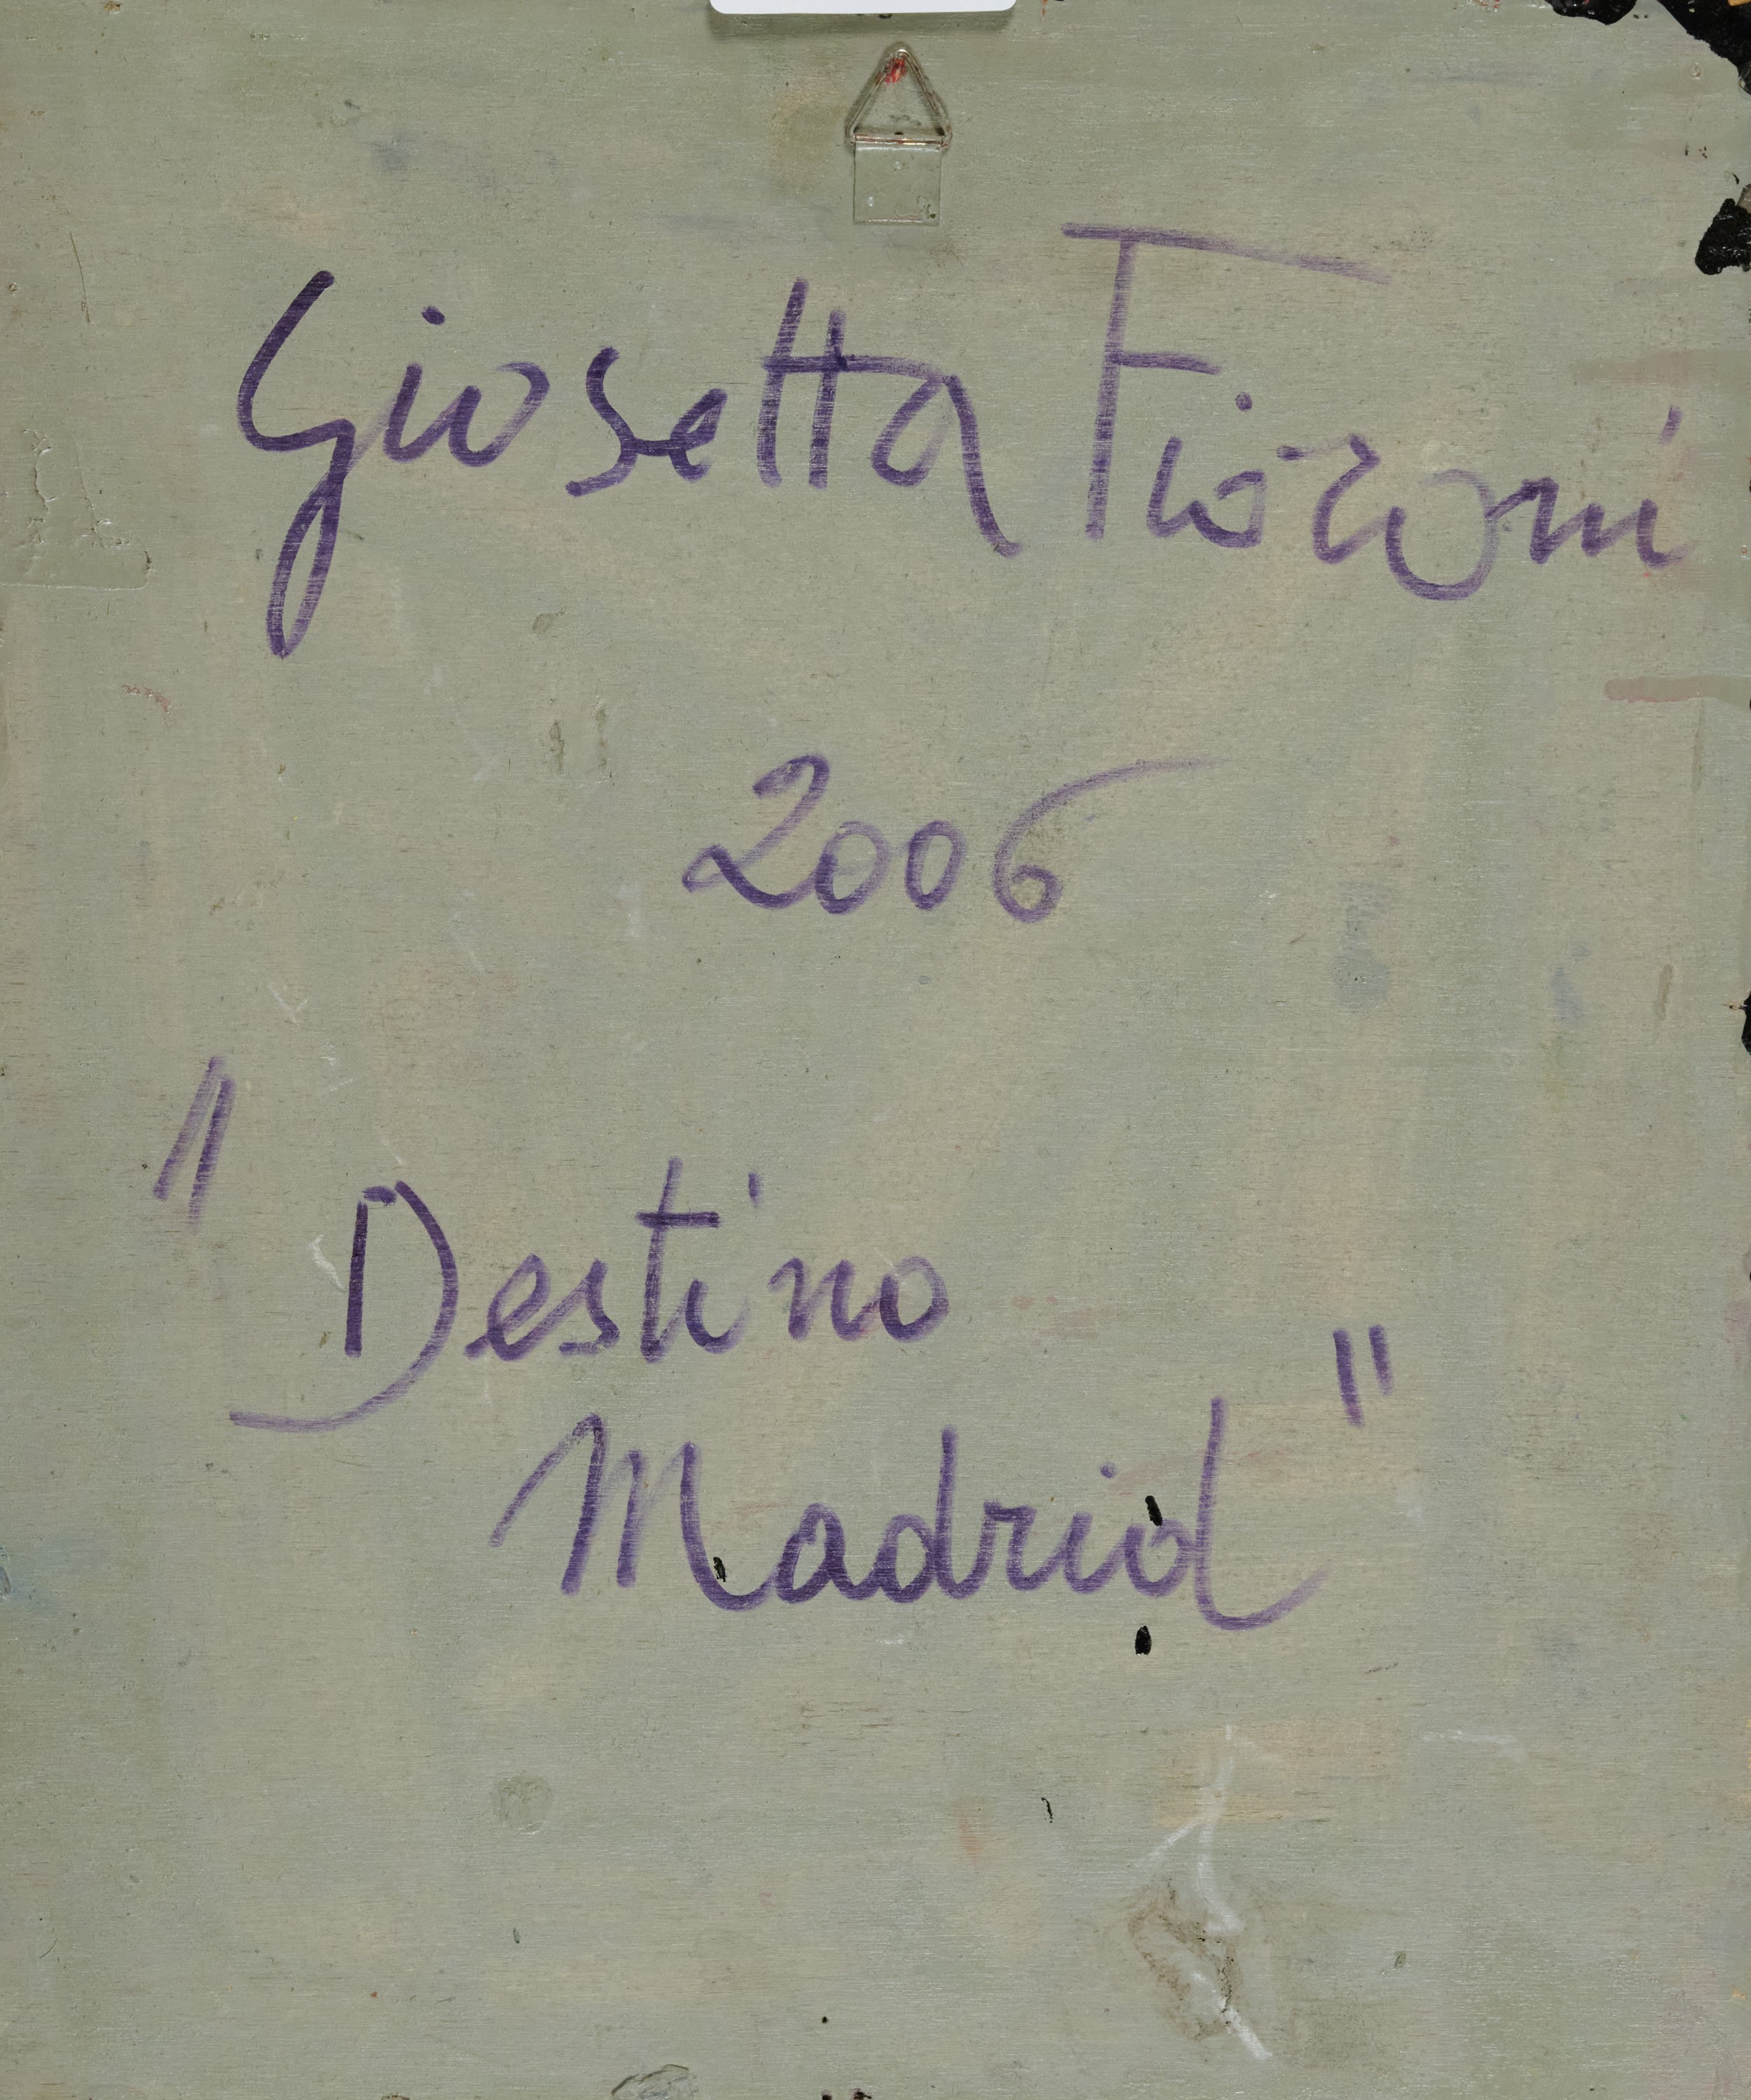 Giosetta Fioroni
2006
"Destino
Madrid"